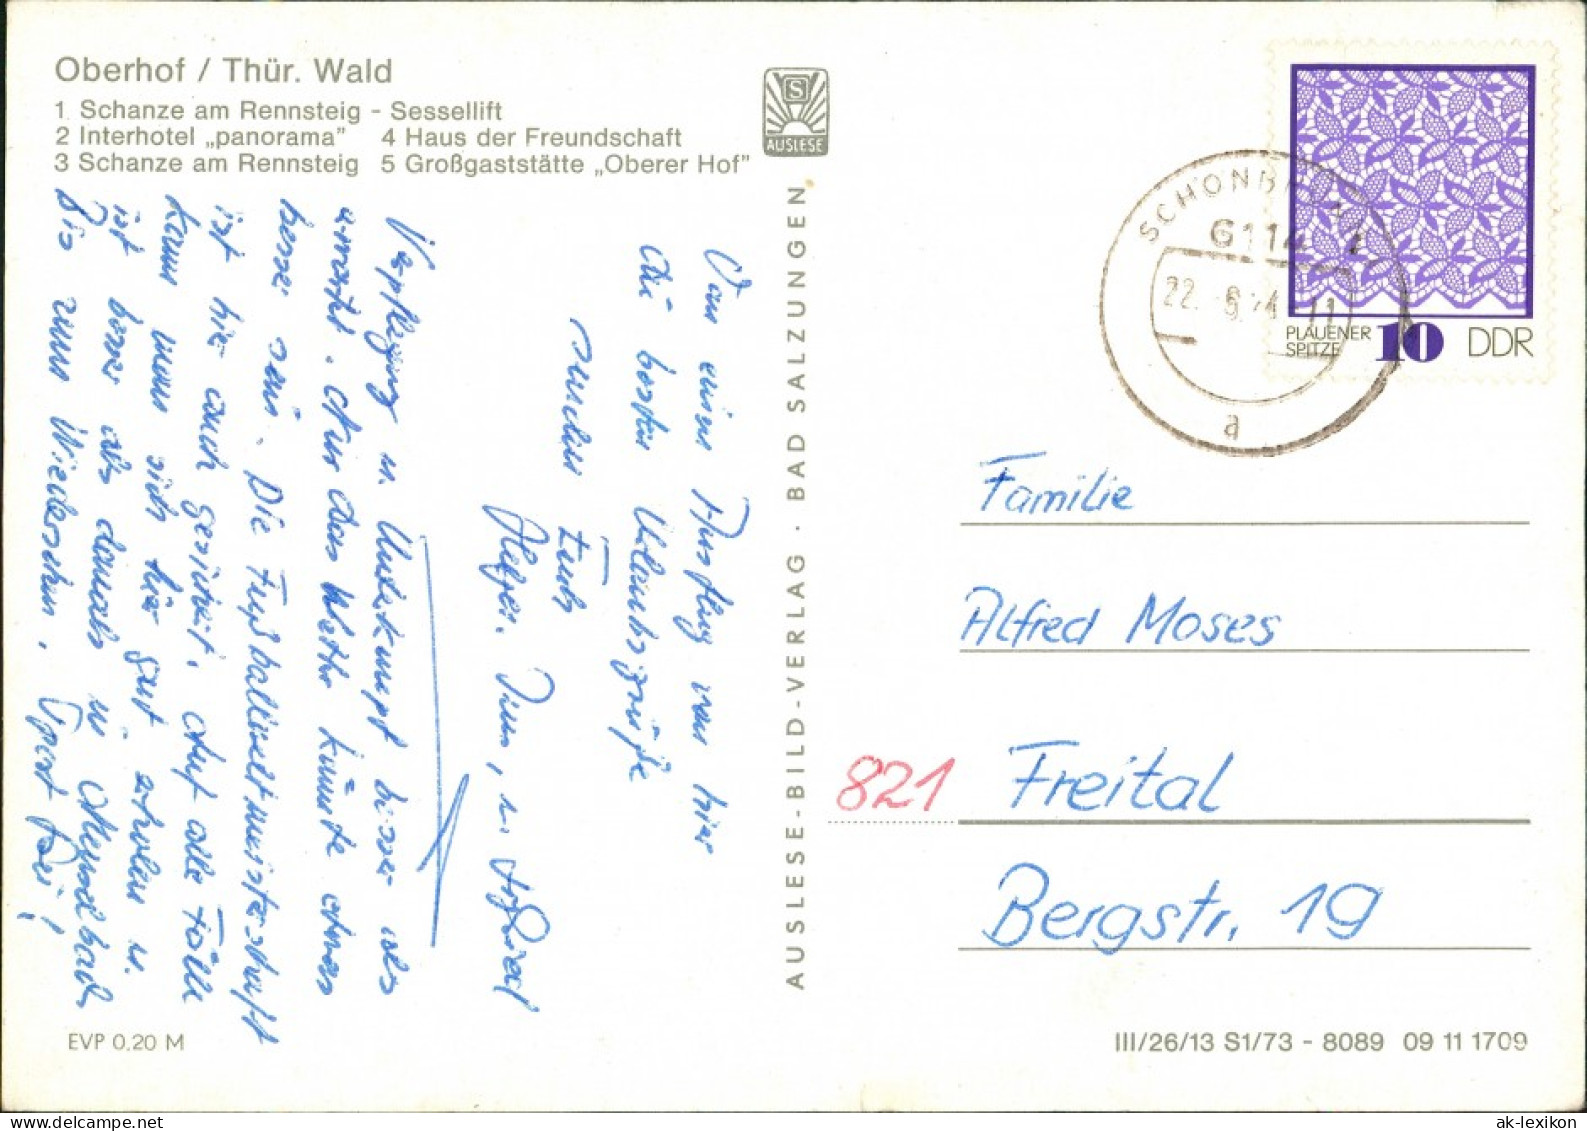 Oberhof / Thür. Wald
1 Schanze am Rennsteig - Sessellift
2 Interhotel „panorama" 4 Haus der Freundschaft
3 Schanze am Rennsteig 5 Großgaststätte „Oberer Hof"
S
AUSLESE
Von einem Ausflug von hier
die besten Urlaubsgrüße
senden Euch
Helger. Jens, u.
Verpflegung u. Unterkunft besser als
erwartet. Nur das Wetter könnte etwas
besser sein. Die Fußballweltmeisterschaft
ist hier auch gesichert. Auf alle Fälle
kann man sich hier gut erholen u.
ist besser als damals in
Bis zum Wiedersehen. Sport frei!
AUSLESE-BILD-VERLAG · BAD SALZUNGEN
PLAUENER
SPITZE 10 DDR
22. 6.74-11
a
Familie
Alfred Moses
821 Freital
Bergstr. 19
EVP 0,20 M
III/26/13 S1/73 - 8089 09 11 1709
ak-lexikon